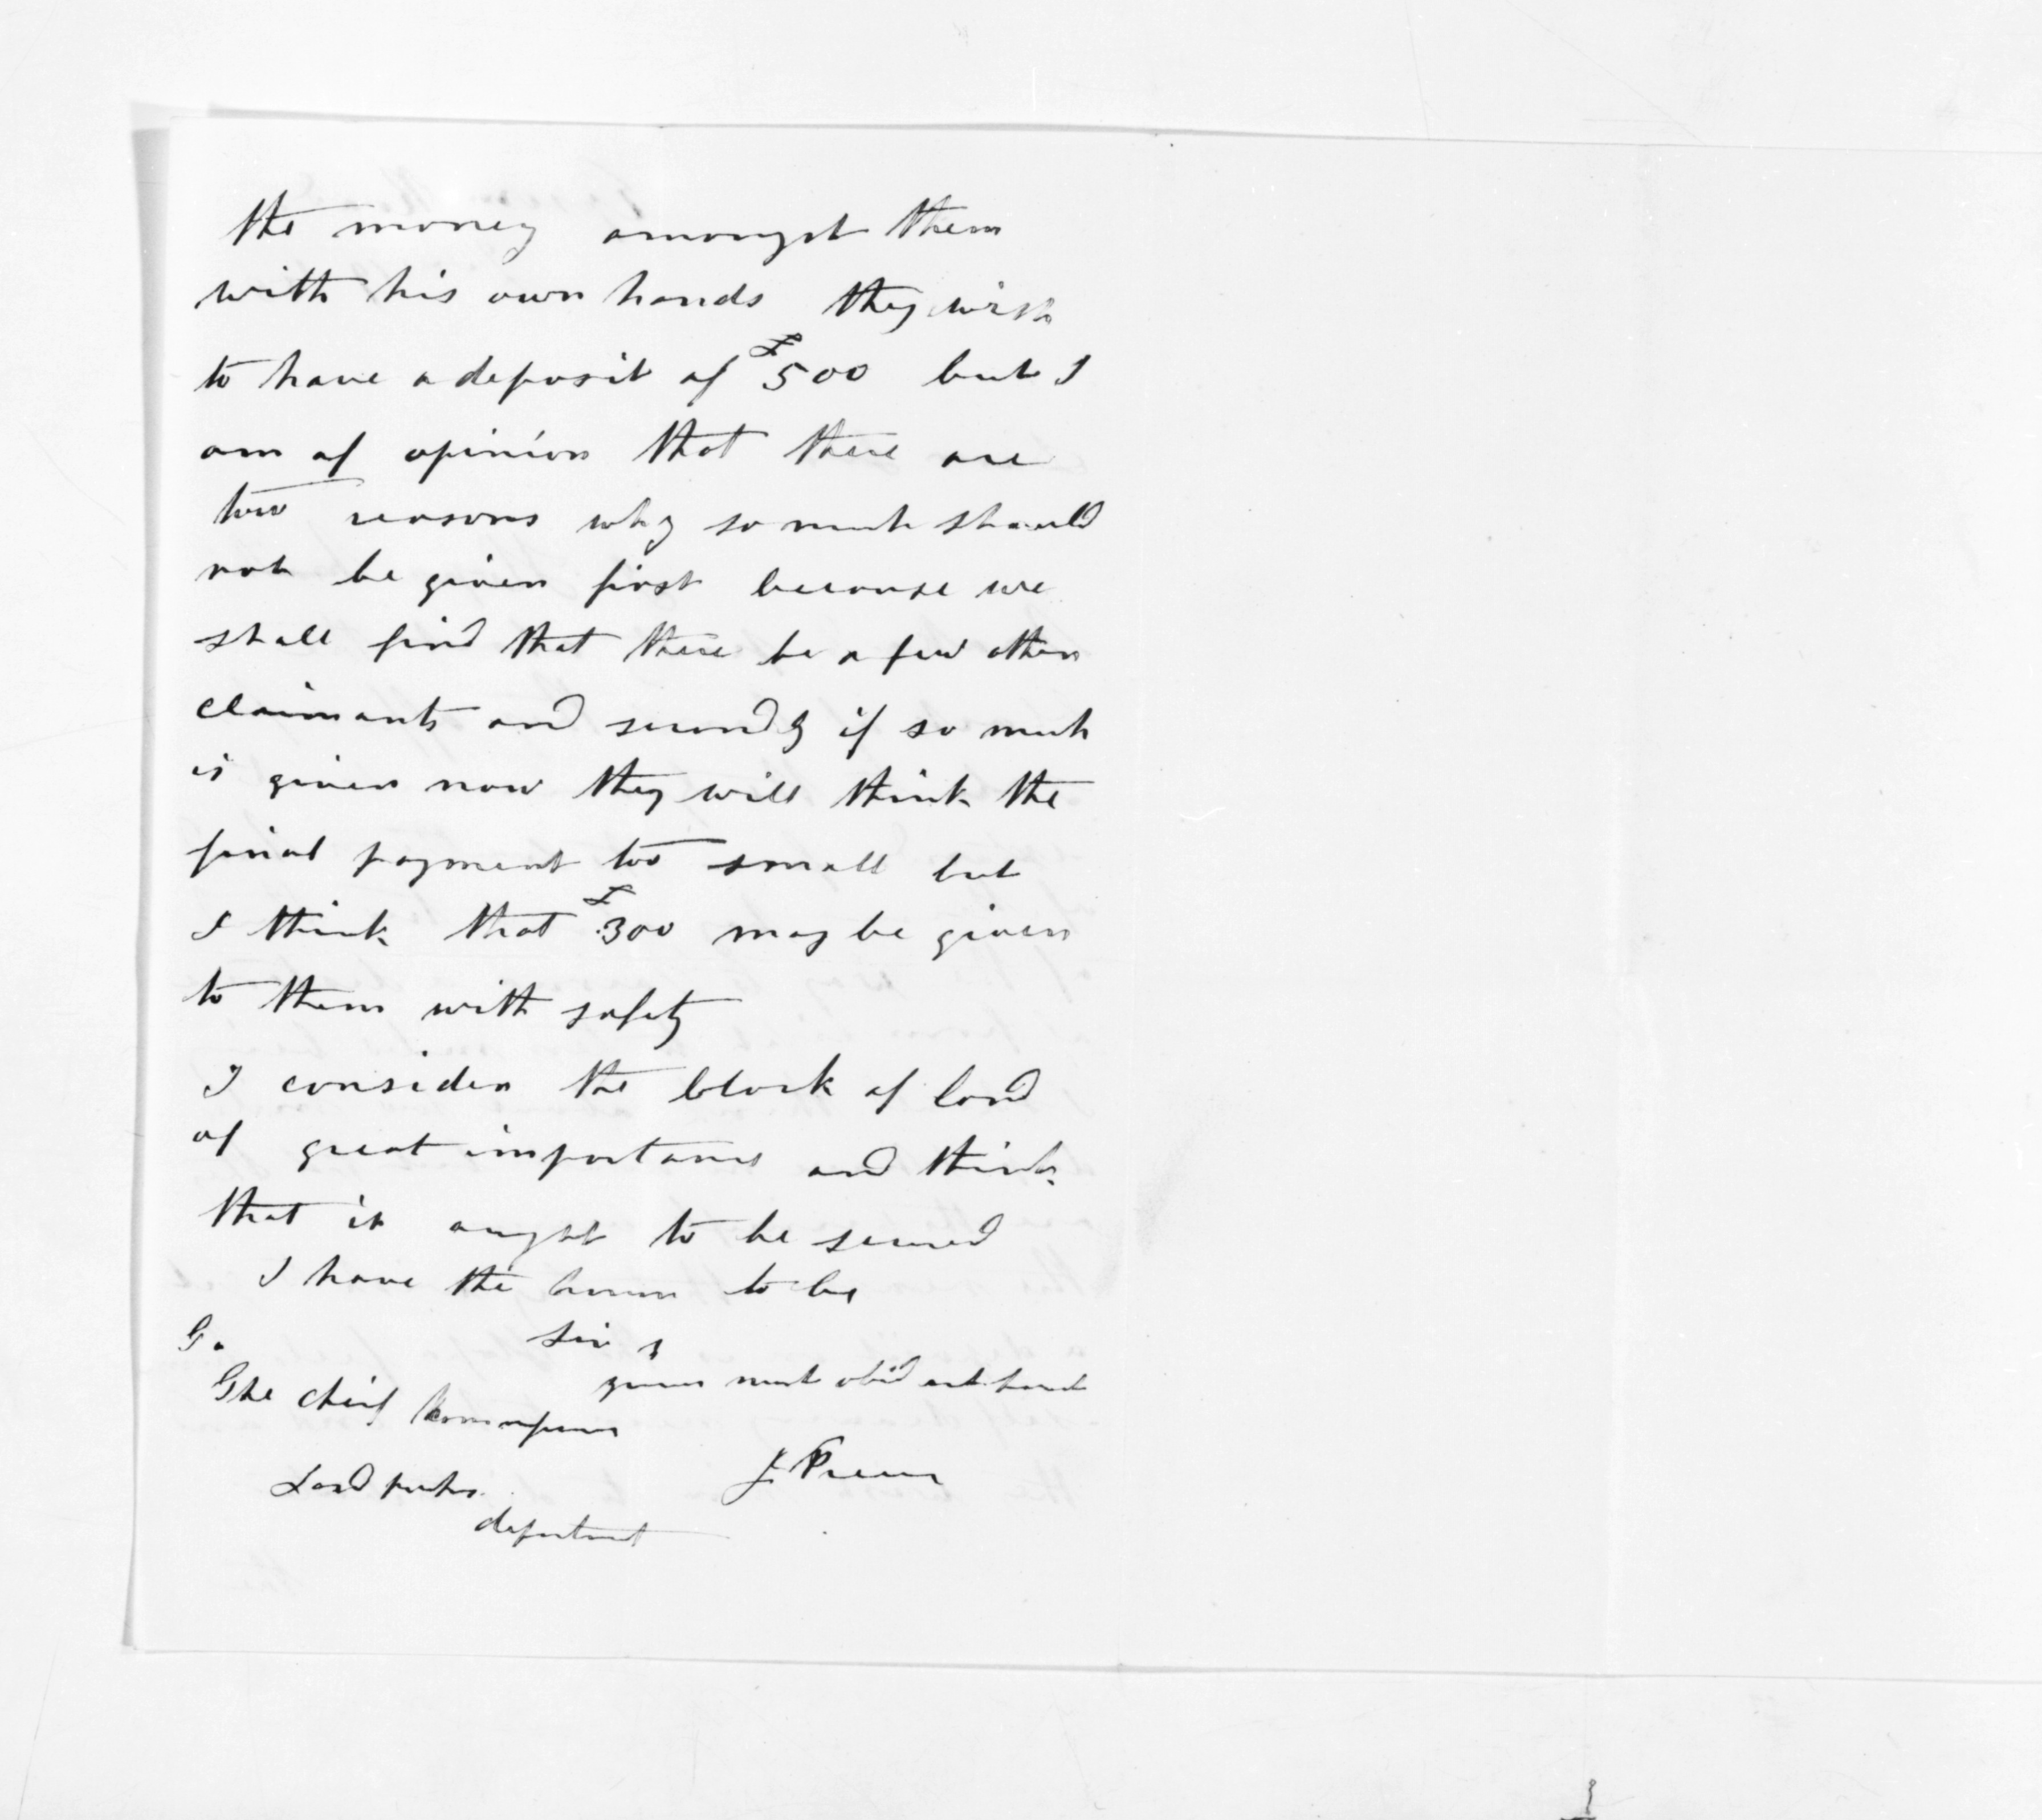 the money amongst them
with his own hands they wish
to have a deposit of £500 but I
am of opinion that there are
two reasons why so much should
not be given first because we
shall find that there be a few other
claimants and secondly if so much
is given now they will think the
final payment too small but
I think that £300 may be given
to them with safety
I consider the block of land
of great importance and think
that it aught to be secured
I have the honor to be
Sir
your most obed
The Chief Commissioner
Land purchs.
department